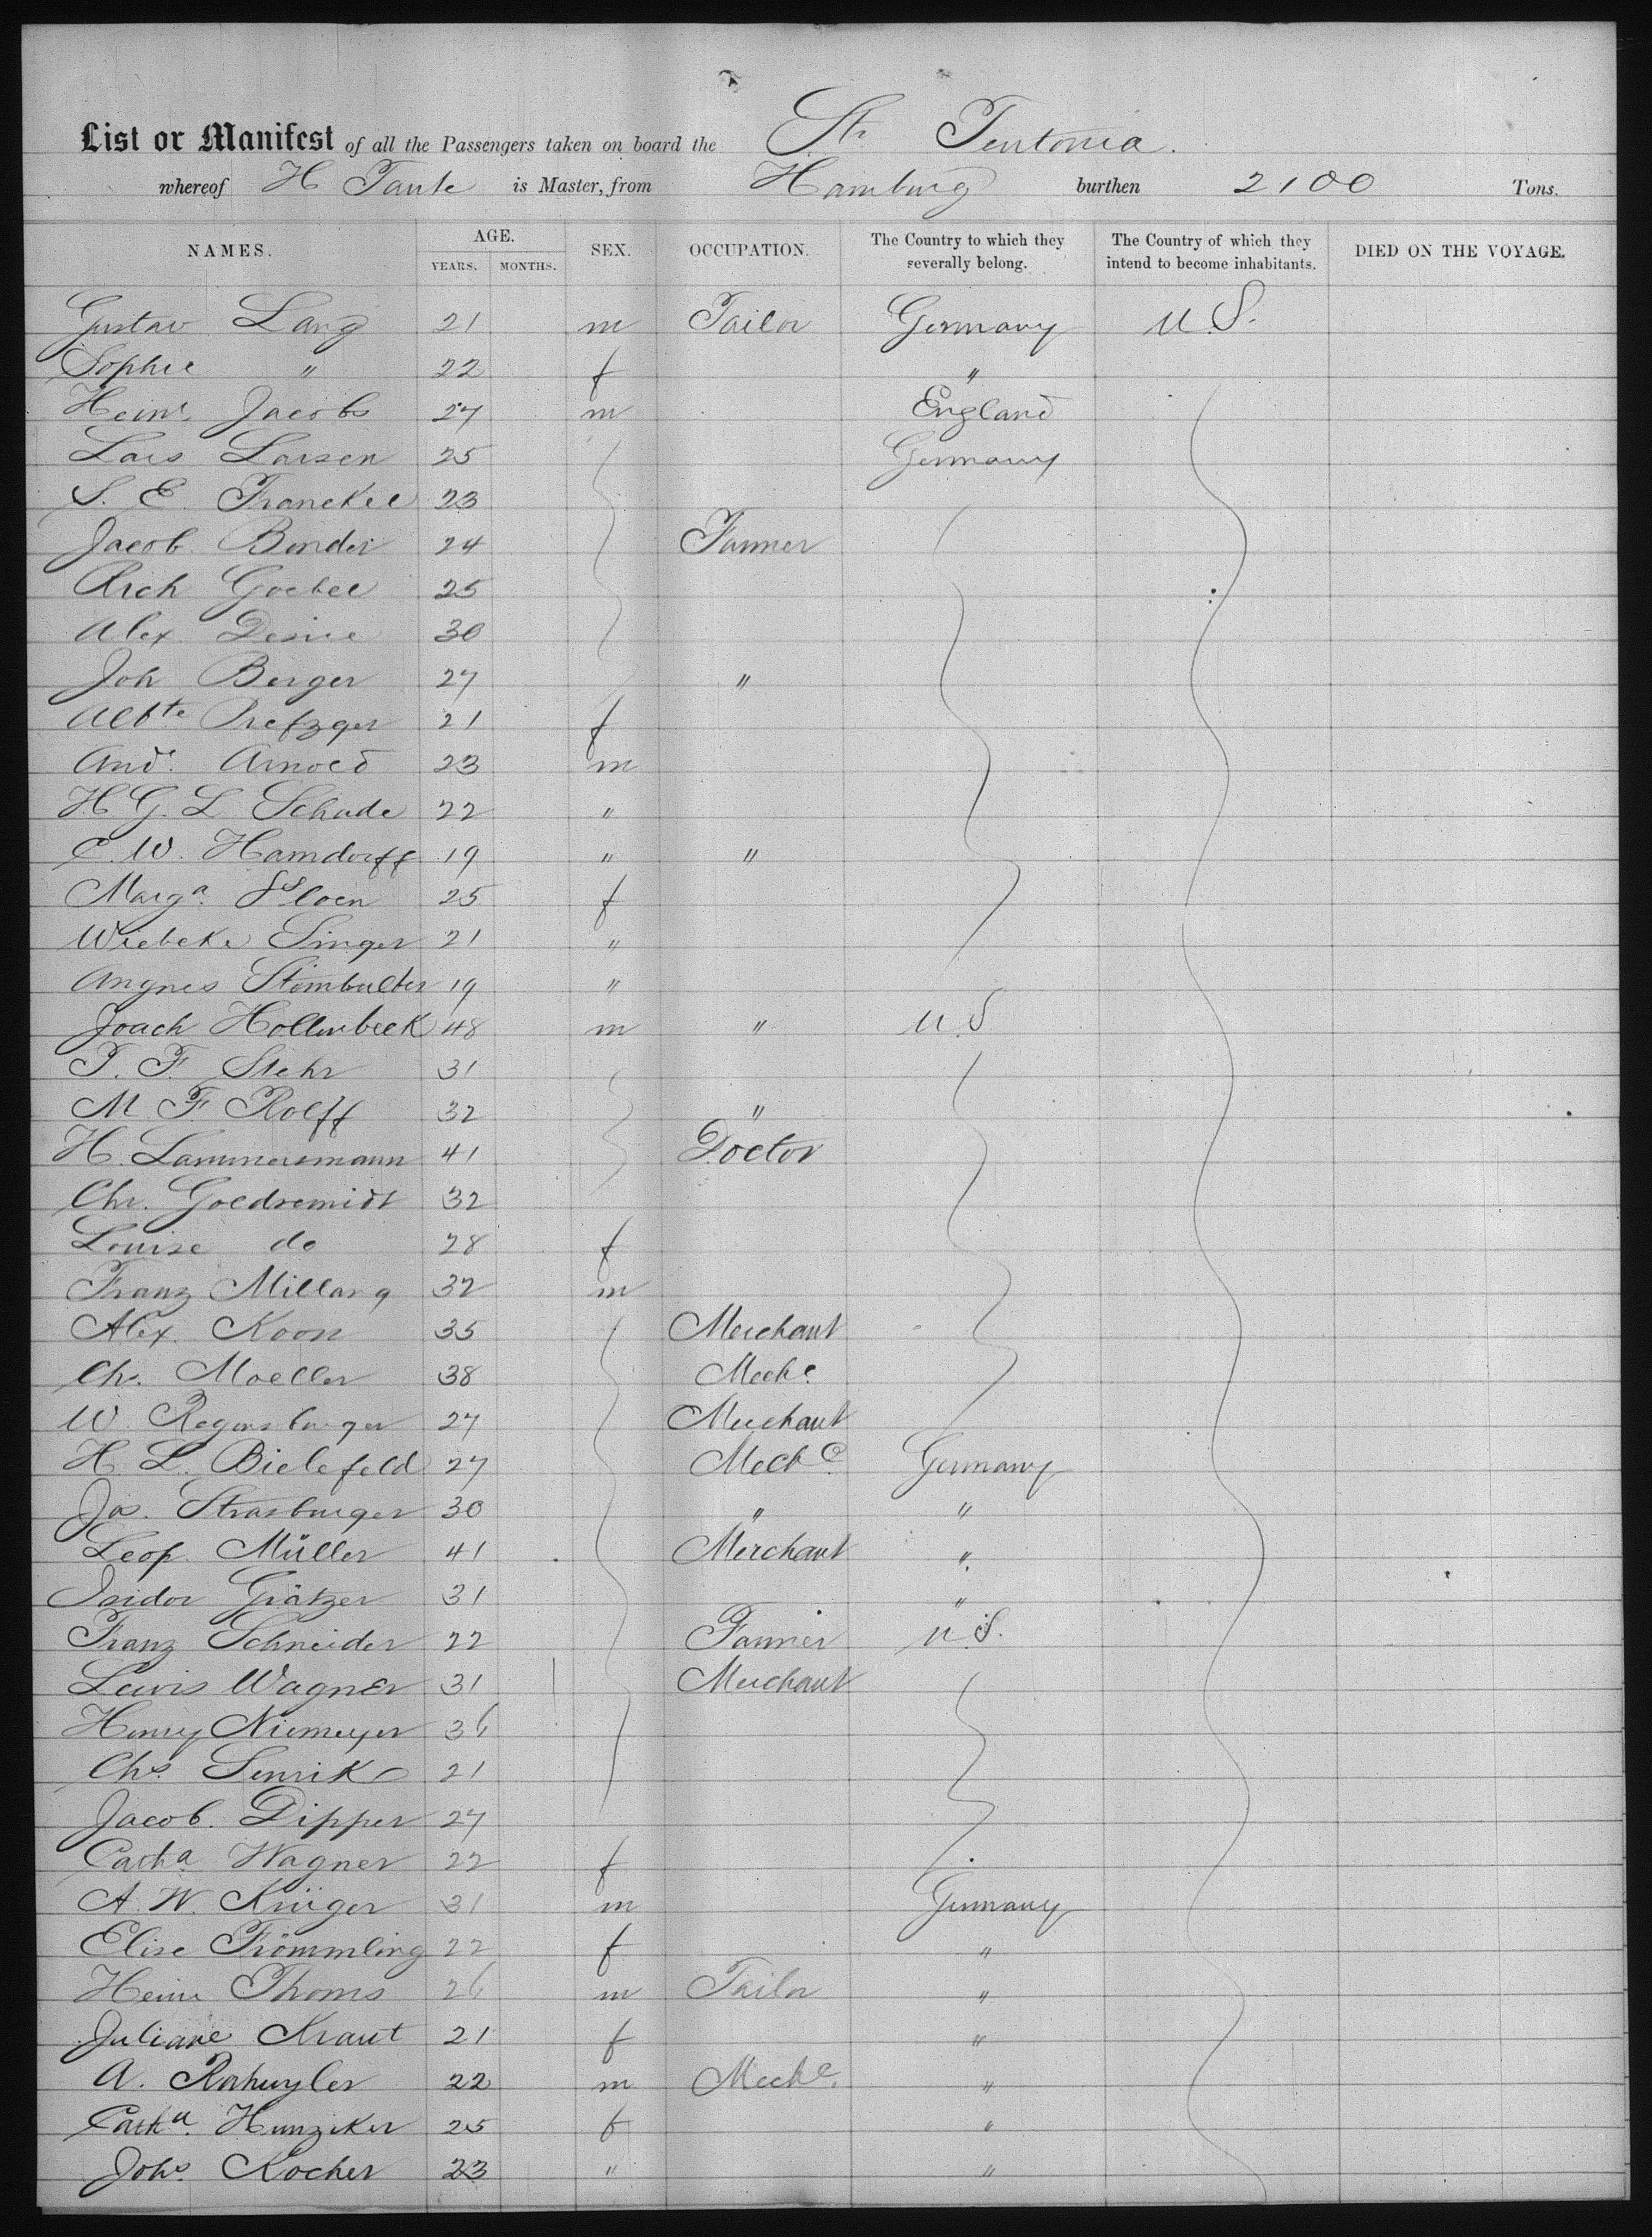 List or Manifest of all the Passengers taken on board the Str Teutonia.
whereof H Taube is Master, from Hamburg burthen 2100 Tons.
NAMES. AGE. YEARS. MONTHS. SEX. OCCUPATION. The Country to which they severally belong. The Country of which they intend to become inhabitants. DIED ON THE VOYAGE.
Gustav Lang 21 m Tailor Germany U.S.
Sophie " 22 f "
Heinr. Jacobs 27 m England
Lars Larsen 25 Germany
S. E. Franckel 23
Jacob Bender 24 Farmer
Rich Goebel 25
Alex 30
Joh Berger 27 "
Albte Prefzger 21 f
Andr. Arnold 23 m
H G. L Schade 22 "
C. W. Hamdorff 19 " "
Marga. 25 f
Wiebeke Singer 21 "
Angnes 19 "
Joach Hollenbeck 48 m " U.S
T. F. Stehr 31
M F. Rolff 32 "
H. Lammersmann 41 Doctor
Chr. Goldsmidt 32
Louise do 28 f
Franz Millarg 32 m
Alex. Koon 35 Merchant
Chr. Moeller 38 Meche.
W Regensburger 27 Merchant
H. L. Bielefeld 27 Mechc. Germany
Jos. Strasburger 30 " "
Leop. Müller 41 Merchant "
Isidor Grätzer 31 "
Franz Schneider 22 Farmer U.S.
Lewis Wagner 31 Merchant
Henry Niemeyer 36
Chs. 21
Jacob. Dipper 27
Catha Wagner 22 f
A. W. Krüger 31 m Germany
Elise Frömmling 22 f "
Heinr Thoms 26 m Tailor "
Juliane Kraut 21 f "
A. 22 m Meche. "
Catha. Hunziker 25 f "
Johs. Kocher 23 " "